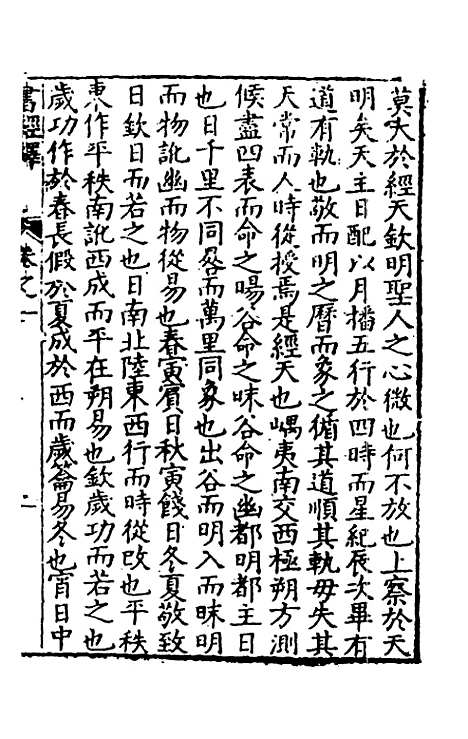 莫大於經天欽明聖人之心微也何不放也上察於天
明矣天主日配以月播五行於四時而星紀辰次畢有
道有軌也敬而明之曆而象之循其道順其軌毋失其
天常而人時從授焉是經天也嵎夷南交西極朔方測
候盡四表而命之暘谷命之昧谷命之幽都明都主日
也日千里不同晷而萬里同象也出谷而明入而昧明
而物訛幽而物從易也春寅賓日秋寅餞日冬夏敬致
日欽日而若之也日南北陸東西行而時從改也平秩
東作平秩南訛西成而平在朔易也欽歲功而若之也
歲功作於春長假於夏成於西而歲籥易冬也宵日中
書經繹
卷之一
一